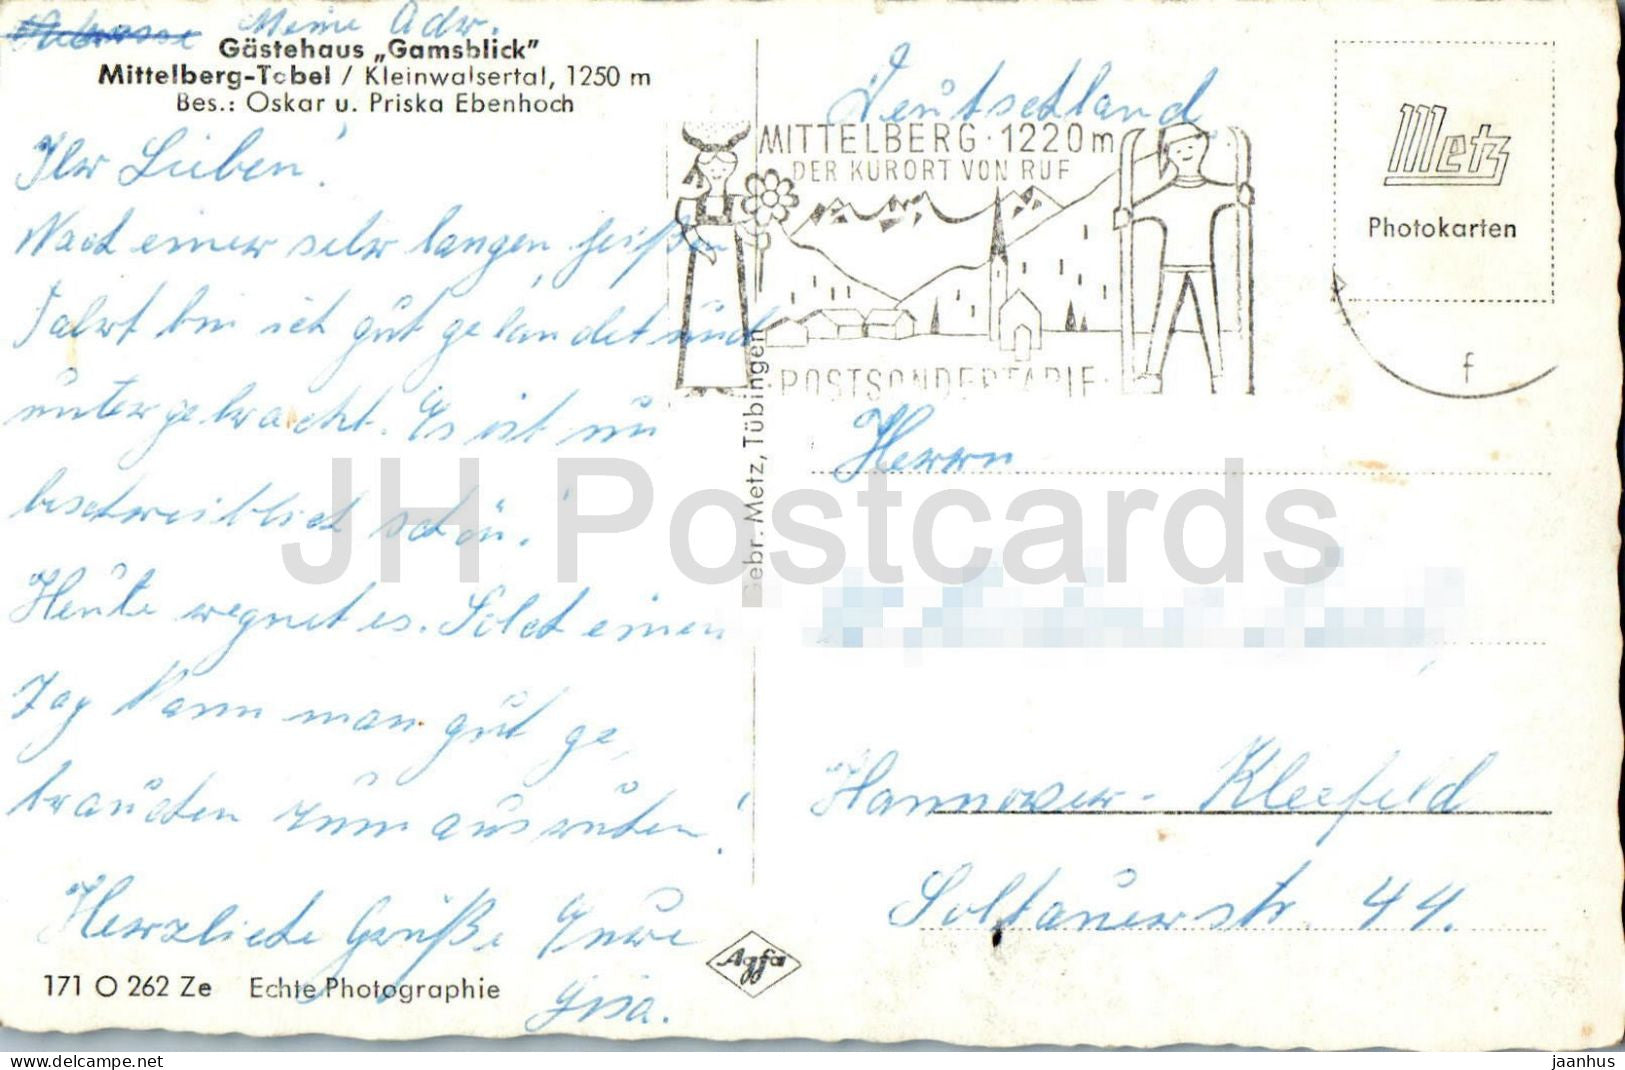 Meine Adr.
Gästehaus „Gamsblick"
Mittelberg-Tobel / Kleinwalsertal, 1250 m
Bes.: Oskar u. Priska Ebenhoch
Ihr Lieben!
Nach einer sehr langen, heißen
Fahrt bin ich gut gelandet und
untergebracht. Es ist un
beschreiblich schön!
Heute regnet es. Solch einen
Tag kann man gut ge
brauchen zum ausruhen!
Herzliche Grüße Eure
Gisa.
171 O 262 Ze Echte Photographie
Agfa
Gebr. Metz, Tübingen
Deutschland
MITTELBERG · 1220 m
DER KURORT VON RUF
·POSTSONDERTARIF·
Metz
Photokarten
f
Herrn
Hannover-Kleefeld
Soltauerstr. 44.
JH Postcards
www.delcampe.net
jaanhus